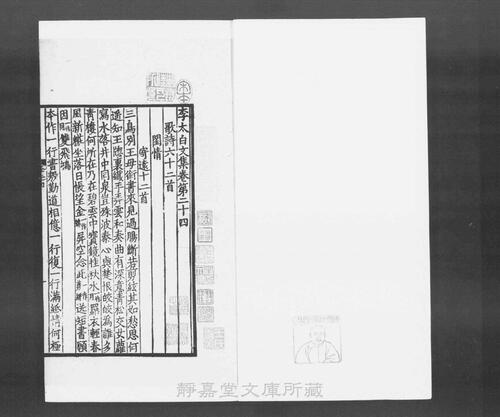 李太白文集卷第二十四
歌詩六十二首
閨情
寄遠十二首
三鳥別王母銜書來見過腸斷若剪絃其如愁思何
遥知玉窓裏纖手弄雲和奏曲有深意青松交女蘿
寫水落井中同泉豈殊波秦心與楚恨皎皎為誰多
青樓何所在乃在碧雲中寶鏡挂秋水羅衣輕春
風新粧坐落日悵望金屏空念此送短書願
因雙飛鴻
本作一行書殷勤道相憶一行復一行滿紙情何極
靜嘉堂文庫所藏